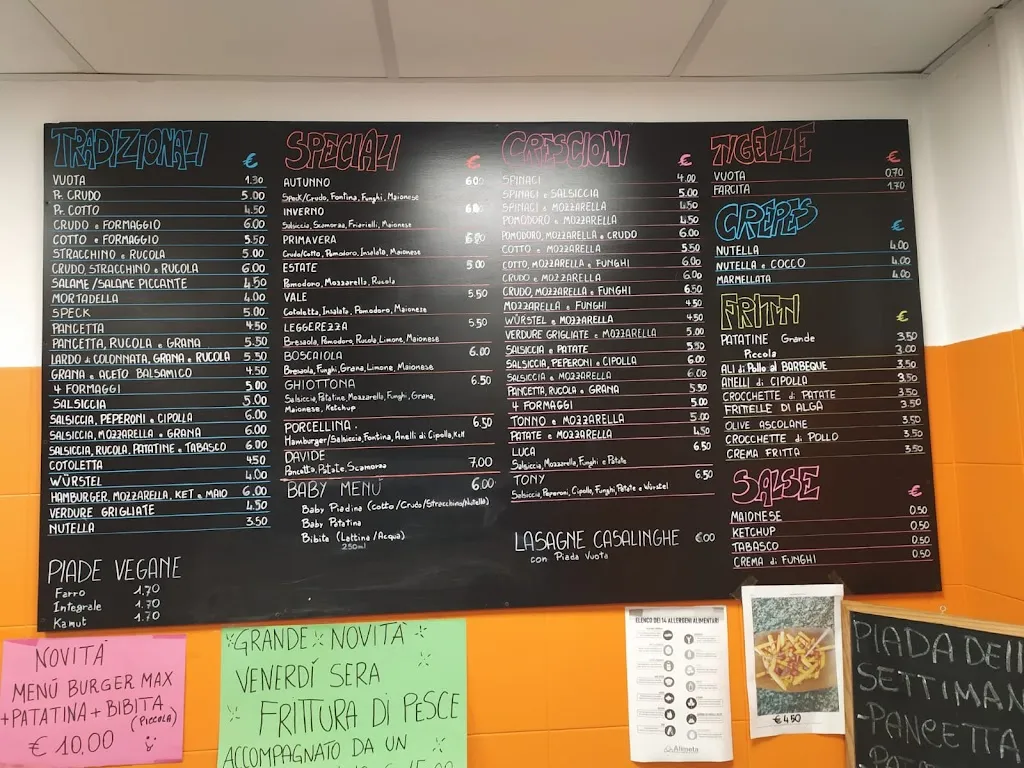 TRADIZIONALI €
VUOTA 1.30
Pr. CRUDO 5.00
Pr. COTTO 4.50
CRUDO e FORMAGGIO 6.00
COTTO e FORMAGGIO 5.50
STRACCHINO e RUCOLA 5.00
CRUDO, STRACCHINO e RUCOLA 6.00
SALAME/SALAME PICCANTE 4.50
MORTADELLA 4.00
SPECK 5.00
PANCETTA 4.50
PANCETTA, RUCOLA e GRANA 5.50
LARDO di COLONNATA, GRANA e RUCOLA 5.50
GRANA e ACETO BALSAMICO 4.50
4 FORMAGGI 5.00
SALSICCIA 5.00
SALSICCIA, PEPERONI e CIPOLLA 6.00
SALSICCIA, MOZZARELLA e GRANA 6.00
SALSICCIA, RUCOLA, PATATINE e TABASCO 6.00
COTOLETTA 4.50
WÜRSTEL 4.00
HAMBURGER, MOZZARELLA, KET e MAIO 6.00
VERDURE GRIGLIATE 4.50
NUTELLA 3.50
PIADE VEGANE
Farro 1.70
Integrale 1.70
Kamut 1.70
SPECIALI €
AUTUNNO
Speck/Crudo, Fontina, Funghi, Maionese
INVERNO
Salsiccia, Scamorza, Friarielli, Maionese
PRIMAVERA
Crudo/Cotto, Pomodoro, Insalata, Maionese
ESTATE 5.00
Pomodoro, Mozzarella, Rucola
VALE 5.50
Cotoletta, Insalata, Pomodoro, Maionese
LEGGEREZZA 5.50
Bresaola, Pomodoro, Rucola, Limone, Maionese
BOSCAIOLA 6.00
Bresaola, Funghi, Grana, Limone, Maionese
GHIOTTONA 6.50
Salsiccia, Patatine, Mozzarella, Funghi, Grana,
Maionese, Ketchup
PORCELLINA. 6.50
Hamburger/Salsiccia, Fontina, Anelli di Cipolla, Ket
DAVIDE 7,00
Pancetta, Patate, Scamorza
BABY MENÙ 6.00
Baby Piadina (Cotto/Crudo/Stracchino/Nutella)
Baby Patatina
Bibita (Lattina/Acqua)
250ml
CRESCIONI €
SPINACI 4.00
SPINACI e SALSICCIA 5.00
SPINACI e MOZZARELLA 4.50
POMODORO e MOZZARELLA 4.50
POMODORO, MOZZARELLA e CRUDO 6.00
COTTO e MOZZARELLA 5.50
COTTO, MOZZARELLA e FUNGHI 6.00
CRUDO e MOZZARELLA 6.00
CRUDO, MOZZARELLA e FUNGHI 6.50
MOZZARELLA e FUNGHI 4.50
WÜRSTEL e MOZZARELLA 5.00
VERDURE GRIGLIATE e MOZZARELLA 5.00
SALSICCIA e PATATE 5.50
SALSICCIA, PEPERONI e CIPOLLA 6.00
SALSICCIA e MOZZARELLA 6.00
PANCETTA, RUCOLA e GRANA 5.50
4 FORMAGGI 5.00
TONNO e MOZZARELLA 5.00
PATATE e MOZZARELLA 4.50
LUCA 6.50
Salsiccia, Mozzarella, Funghi e Patate
TONY 6.50
Salsiccia, Peperoni, Cipolla, Funghi, Patate e Würstel
LASAGNE CASALINGHE
con Piada Vuota
TIGELLE €
VUOTA 0.70
FARCITA 1.70
CREPES €
NUTELLA 4.00
NUTELLA e COCCO 4.00
MARMELLATA 4.00
FRITTI €
PATATINE Grande 3.50
Piccola 3.00
ALI di Pollo al BARBEQUE 3.50
ANELLI di CIPOLLA 3.50
CROCCHETTE di PATATE 3.50
FRITTELLE DI ALGA 3.50
OLIVE ASCOLANE 3.50
CROCCHETTE di POLLO 3.50
CREMA FRITTA 3.50
SALSE €
MAIONESE 0.50
KETCHUP 0.50
TABASCO 0.50
CREMA di FUNGHI 0.50
NOVITÀ
MENÙ BURGER MAX
+PATATINA+BIBITA
(PICCOLA)
€ 10,00
GRANDE NOVITÀ
VENERDÍ SERA
FRITTURA DI PESCE
ACCOMPAGNATO DA UN
ELENCO DEI 14 ALLERGENI ALIMENTARI
€ 4,50
PIADA DELL
SETTIMAN
-PANCETTA